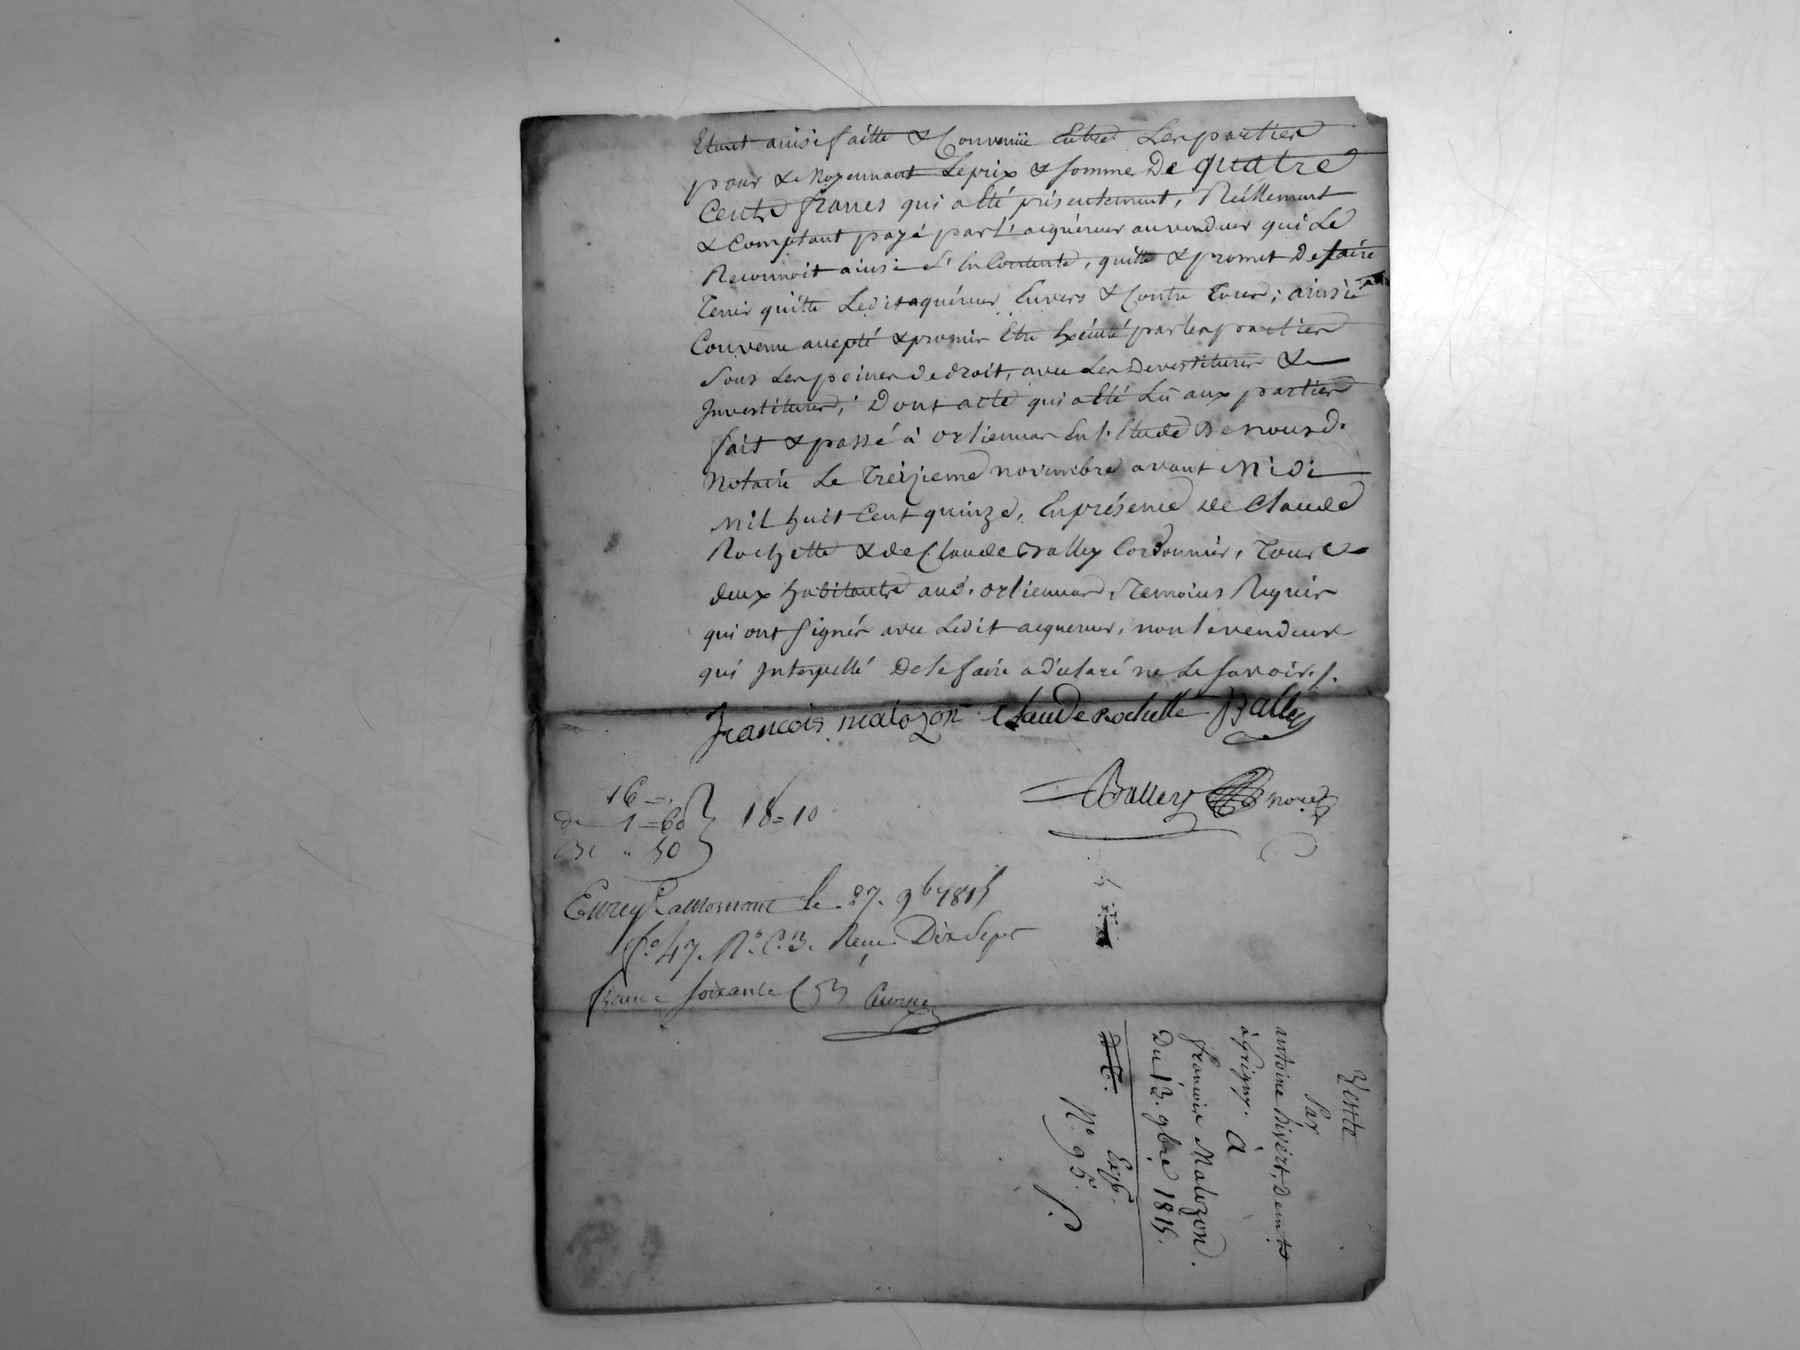 Etant ainsi faitte & Convenüe Entre Les parties
pour & Moyennant Le prix & somme De quatre
Cents francs qui a Eté présentement, Réellement
& Comptant payé par l'acquéreur au vendeur qui Le
Reconnoit ainsi s'en Contente, quitte & promet De faire
Tenir quitte Ledit aquéreur Envers & Contre Tous; ainsi
Convenu accepté & promis Etre Exécuté par les parties
sous Les peines de droit, avec Les Devestitures &
Investitures; Dont acte qui a Eté Lu aux parties
fait & passé à orliennas En l'Etude De nous d.
Notaire Le Treizieme novembre avant Midi
Mil huit Cent quinze, En présence de Claude
Rochette & de Claude Balley Cordonnier, Tous
deux habitants aud. orliennas, Temoins Requis
qui ont signés avec Ledit acquereur, non le vendeur
qui Interpellé De le faire a déclaré ne Le savoir./.
François malozon Claude Rochette Balley
Balley not
16 = .
de 1 = 60
50
18 = 10
Enreg à Mornant le 27. 9b 1815
f.o 47. R.o C. 3. Reçu Dix Sept
francs soixante C
Vente
Par
antoine Divert, Dem.t
à grigny. À
françois Malozon.
Du 13. 9bre 1815.
Exp.
N.o 95.